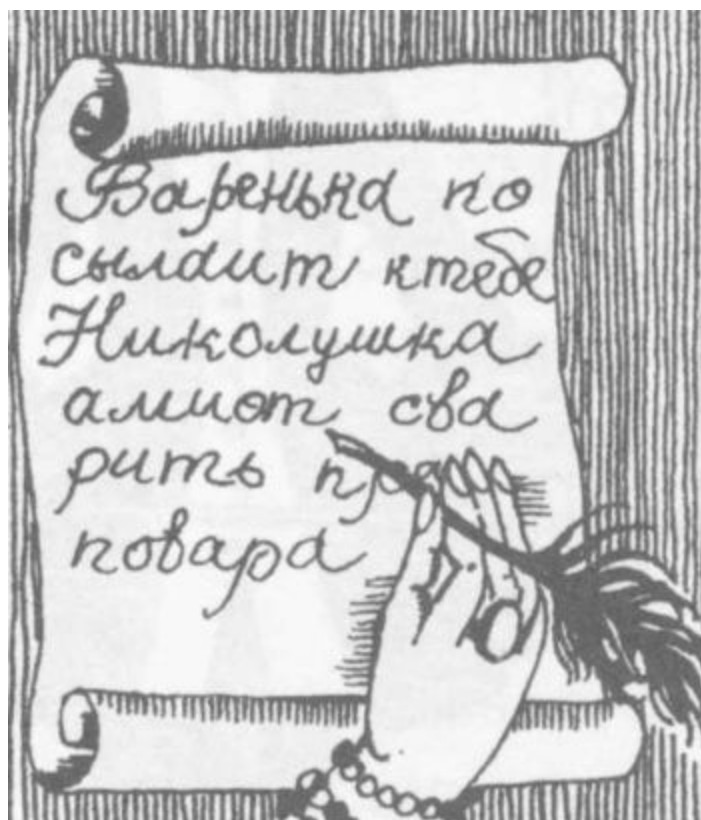 Варенька по
сылаит ктебе
Николушка
амиот сва
рить
повара